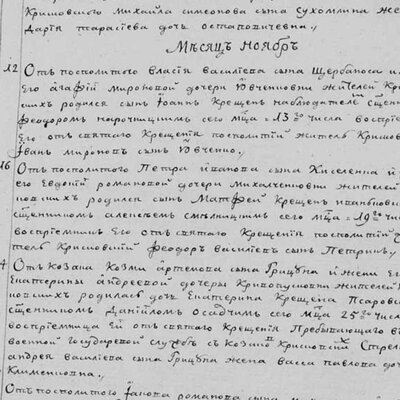 Кришовского Михаила Симеонова сына Сухомлина же
Дария Тарасіева дочь Остаповичевна
Мѣсяцъ Ноябрь
12 Отъ посполитого Власія Василіева сына Щербаноса и
Его Агафіи Мироновой дочери жителей Кри
шихъ родился сынъ Іоаннъ Крещенъ наблюдателемъ сщенн
Феодоромъ сего мца 13го числа воспріе
Его отъ святаго Крещения посполитій житель Кришов
Іванъ Мироновъ сынъ Ювченко
16 Отъ посполитого Петра Іванова сына Киселенка и
его Евдокіи Романовой дочери Михалченковни жителей
новскихъ родился сынъ Матфей Крещенъ
сщенникомъ Алексѣемъ сего мца 19го чис
воспріемникъ Его отъ святаго Крещения посполитій
тель Кришовскій Феодоръ Василіевъ сынъ Петринъ
4 Отъ козака Козми Артемова сына Грицуна и жени Ег
Екатерины Андреевой дочеры жителей
новскихъ родилась дочь Екатерина Крещена
сщенникомъ Данійломъ Осадчимъ сего мца 25го числ
воспріемница Ей отъ святаго Крещения Пребывающаго в
военной Государевой службѣ съ козако Кришовских
Андрея Василіева сына Грицуна жена Васса Павлова до
Клименковна
Отъ посполитого Іакова Романова сына